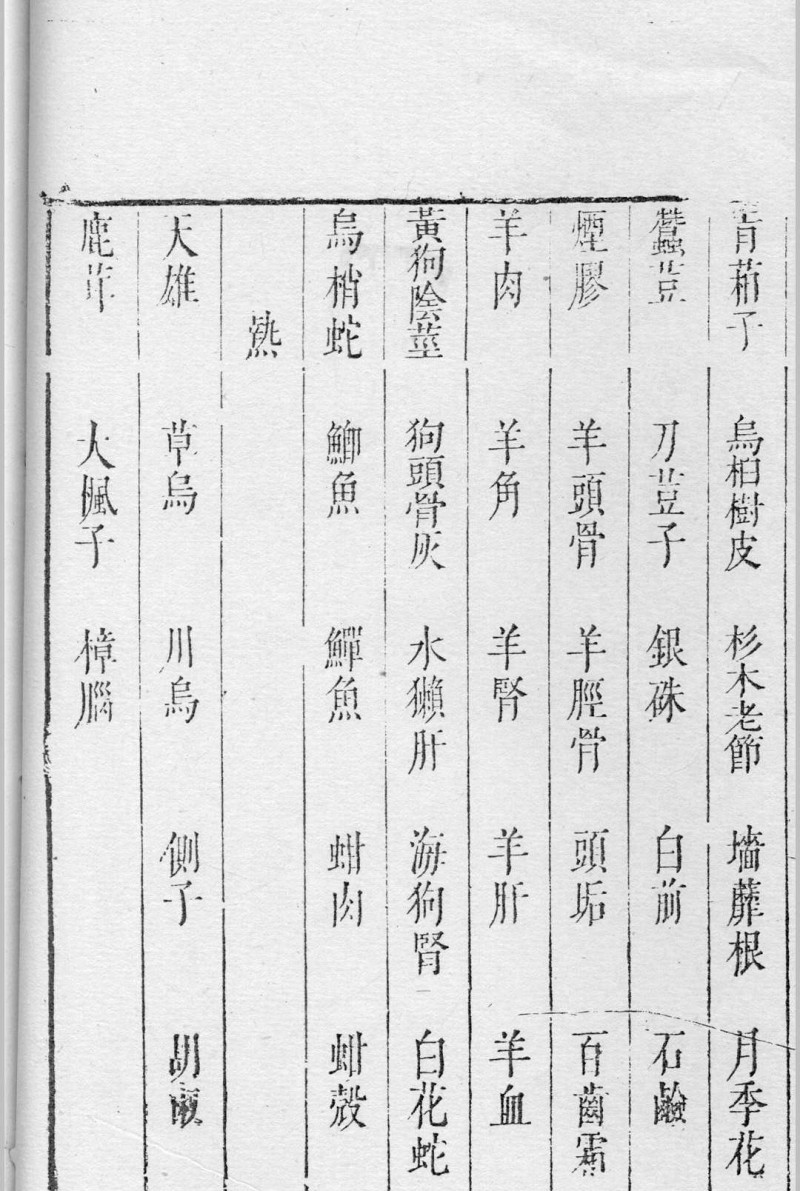 青葙子 烏桕樹皮 杉木老節 墻蘼根 月季花
蠶荳 刀荳子 銀硃 白前 石鹼
煙膠 羊頭骨 羊脛骨 頭垢 百齒霜
羊肉 羊角 羊腎 羊肝 羊血
黃狗陰莖 狗頭骨灰 水獺肝 海狗腎 白花蛇
烏梢蛇 鯽魚 鱓魚 蚶肉 蚶殼
熱
天雄 草烏 川烏 側子 胡椒
鹿茸 大楓子 樟腦